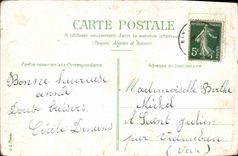 CARTE POSTALE
A utiliser seulement dans le service intérieur
(France, Algérie et Tunisie)
Partie réservée à la Correspondance
Adresse du Destinataire
Bonne heureuse
année
Doux baisers
Cécile
Mademoiselle Berthe
Michel
à Saint Julien
par
(Var)
5c